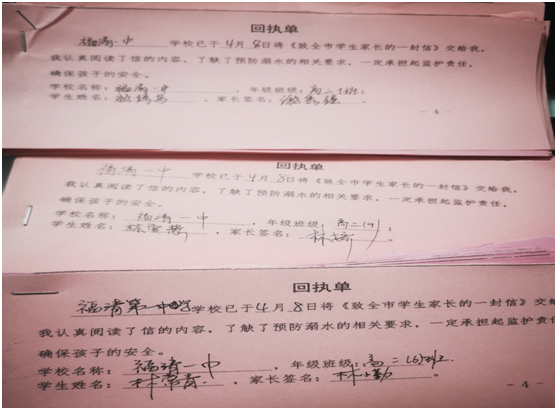 回执单
福清一中 学校已于4月8日将《致全市学生家长的一封信》交给我，
我认真阅读了信的内容，了解了预防溺水的相关要求，一定承担起监护责任，
确保孩子的安全。
学校名称：福清一中，年级班级：高二1班；
学生姓名：，家长签名：。
- 4 -
回执单
福清一中 学校已于4月8日将《致全市学生家长的一封信》交给我，
我认真阅读了信的内容，了解了预防溺水的相关要求，一定承担起监护责任，
确保孩子的安全。
学校名称：福清一中，年级班级：高二(1)；
学生姓名：，家长签名：林。
回执单
福清第一中学 学校已于4月8日将《致全市学生家长的一封信》交给
我认真阅读了信的内容，了解了预防溺水的相关要求，一定承担起监护责
确保孩子的安全。
学校名称：福清一中，年级班级：高二
学生姓名：林，家长签名：林。
- 4 -